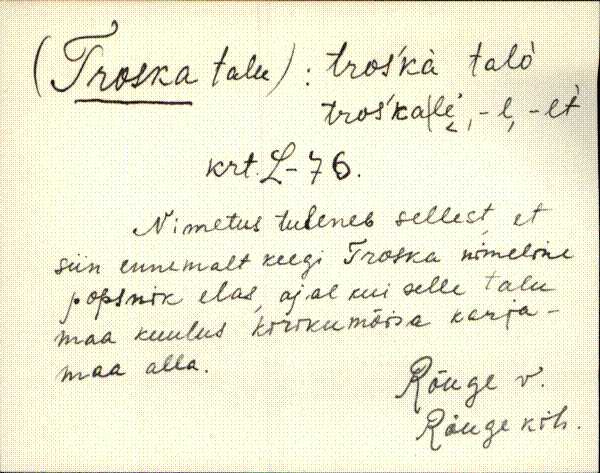 (Troska talu) : trośkà talò
trośka(lè, -l, -lt
krt. L-76.
Nimetus tuleneb sellest, et
siin ennemalt keegi Troska nimeline
popsnik elas, ajal kui selle talu
maa kuulus kirikumõisa karja-
maa alla.
Rõuge v.
Rõuge kih.